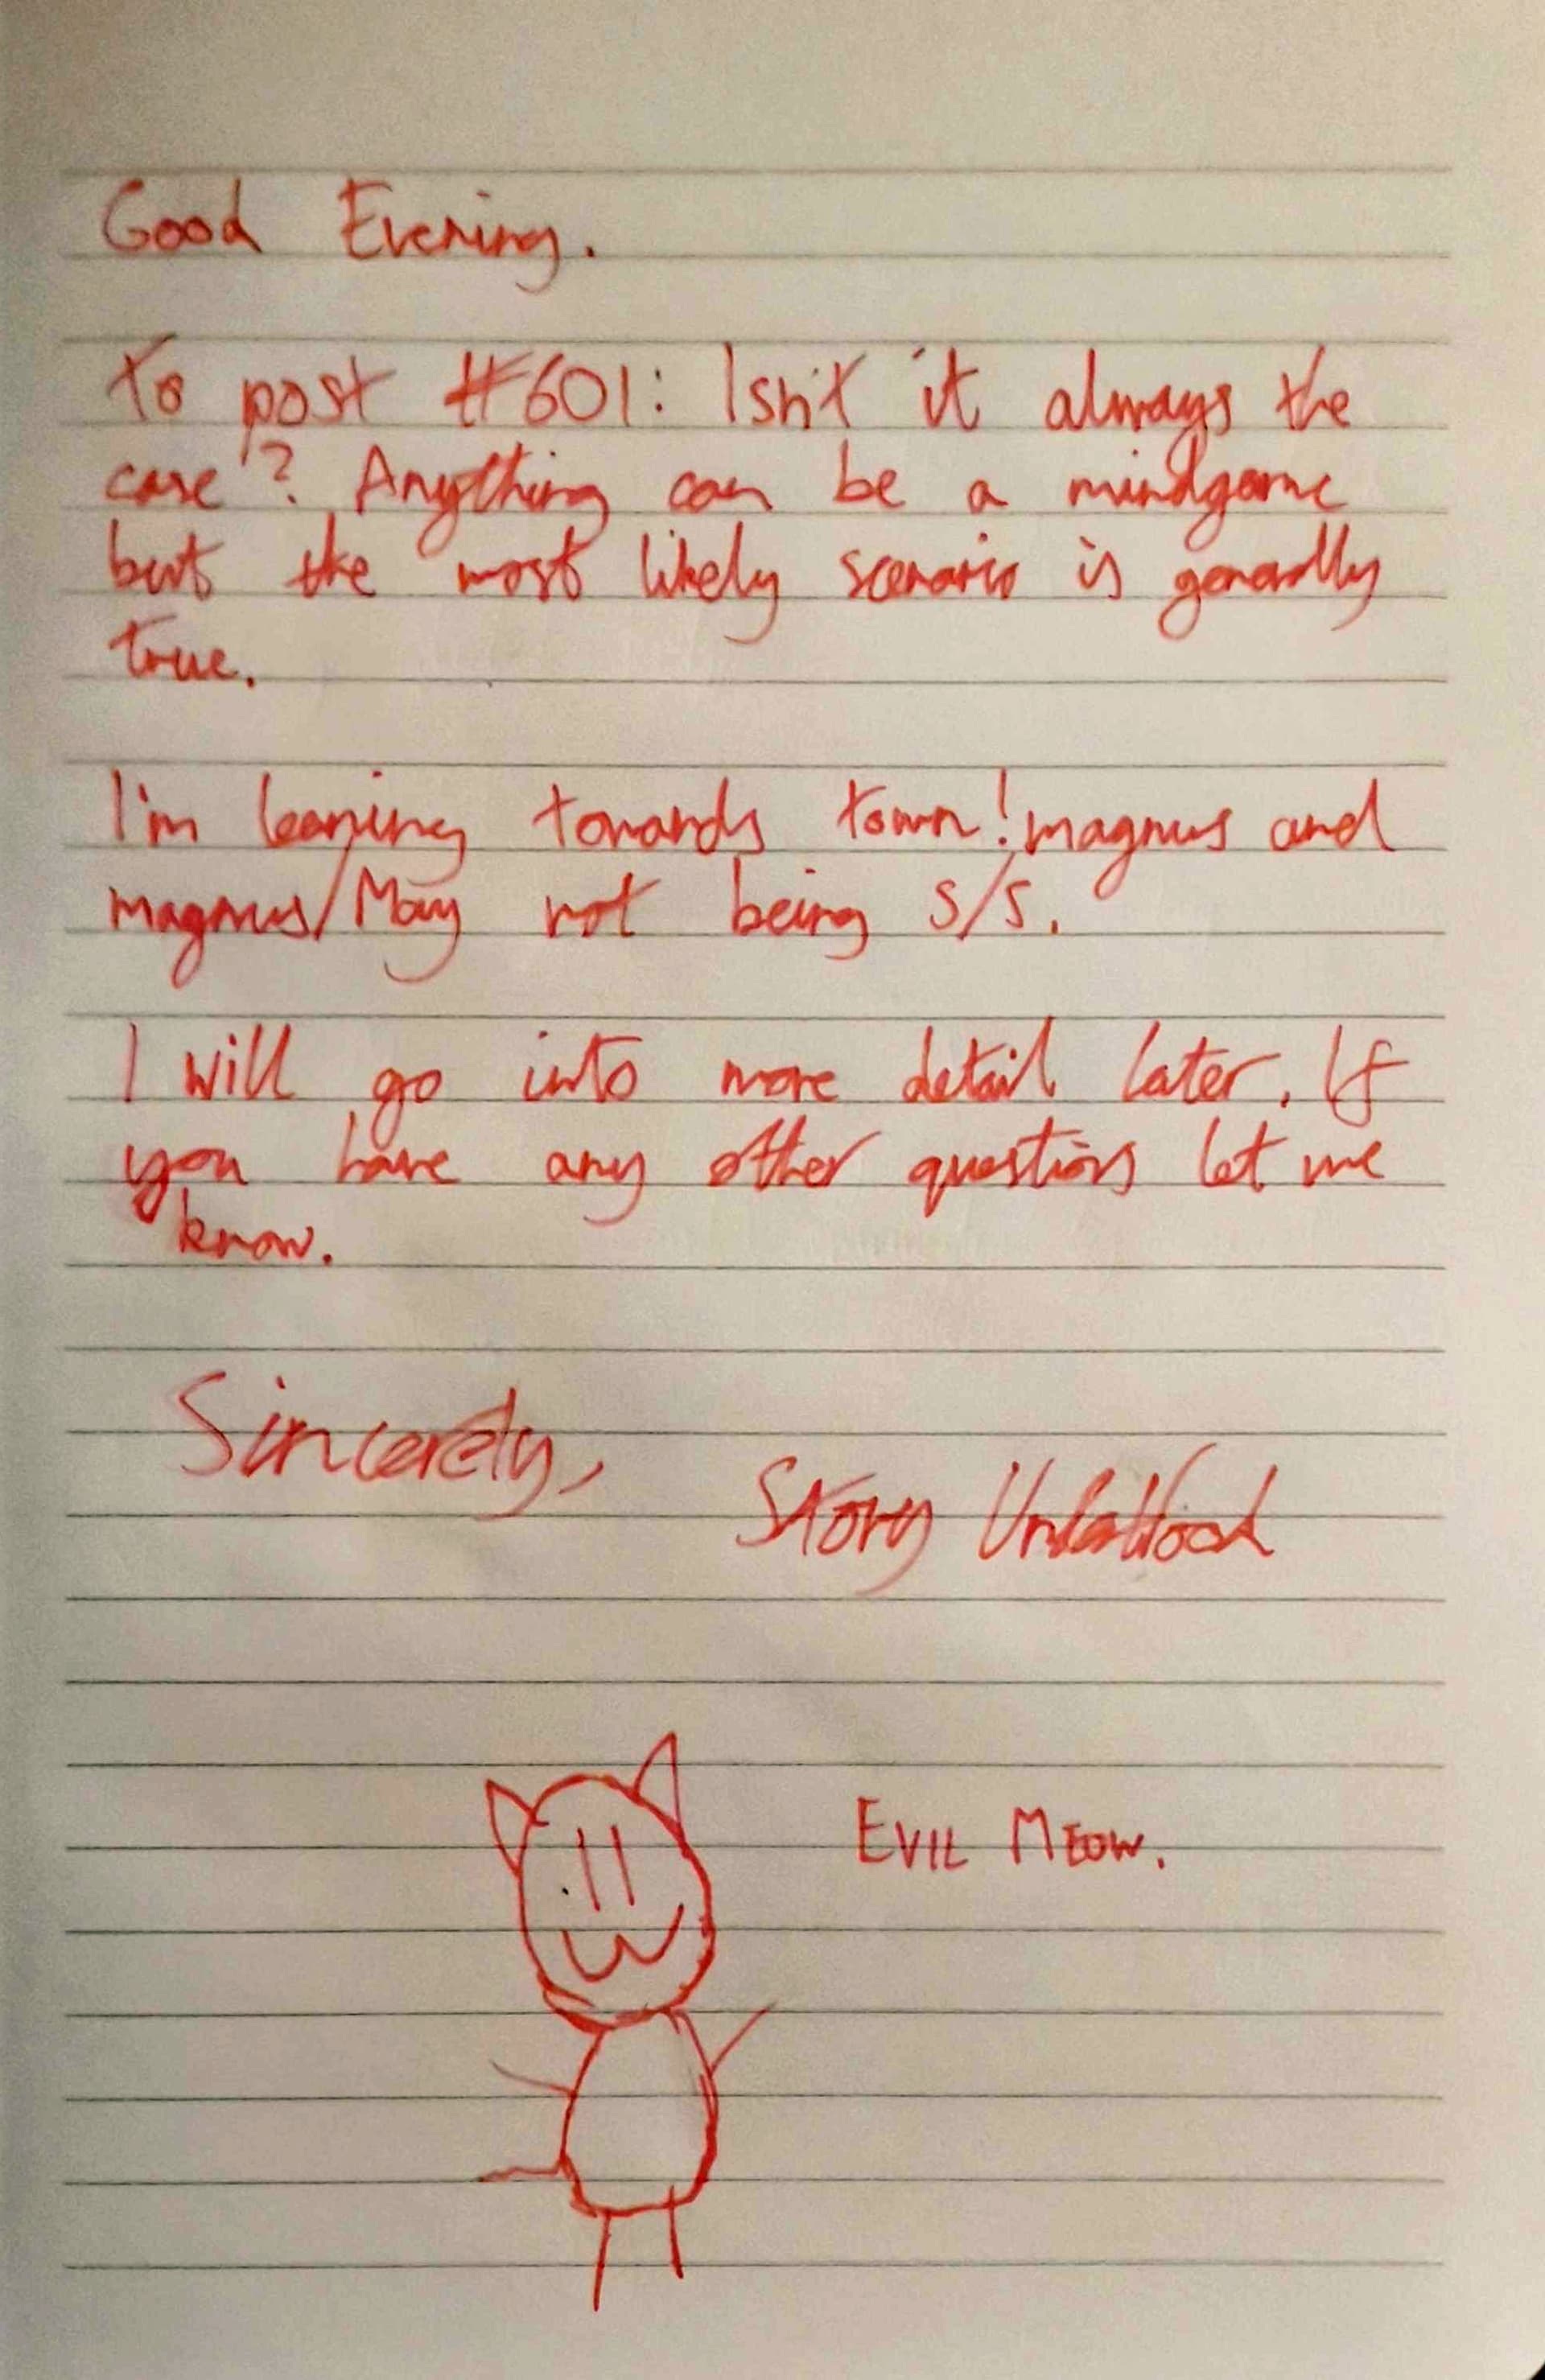 Good Evening.
To post #601: Isn't it always the
case? Anything can be a mindgame
but the most likely scenario is generally
true.
I'm leaning towards town!magnus and
magnus/May not being S/S.
I will go into more detail later. If
you have any other questions let me
know.
Sincerely,
Story
EVIL MEOW.